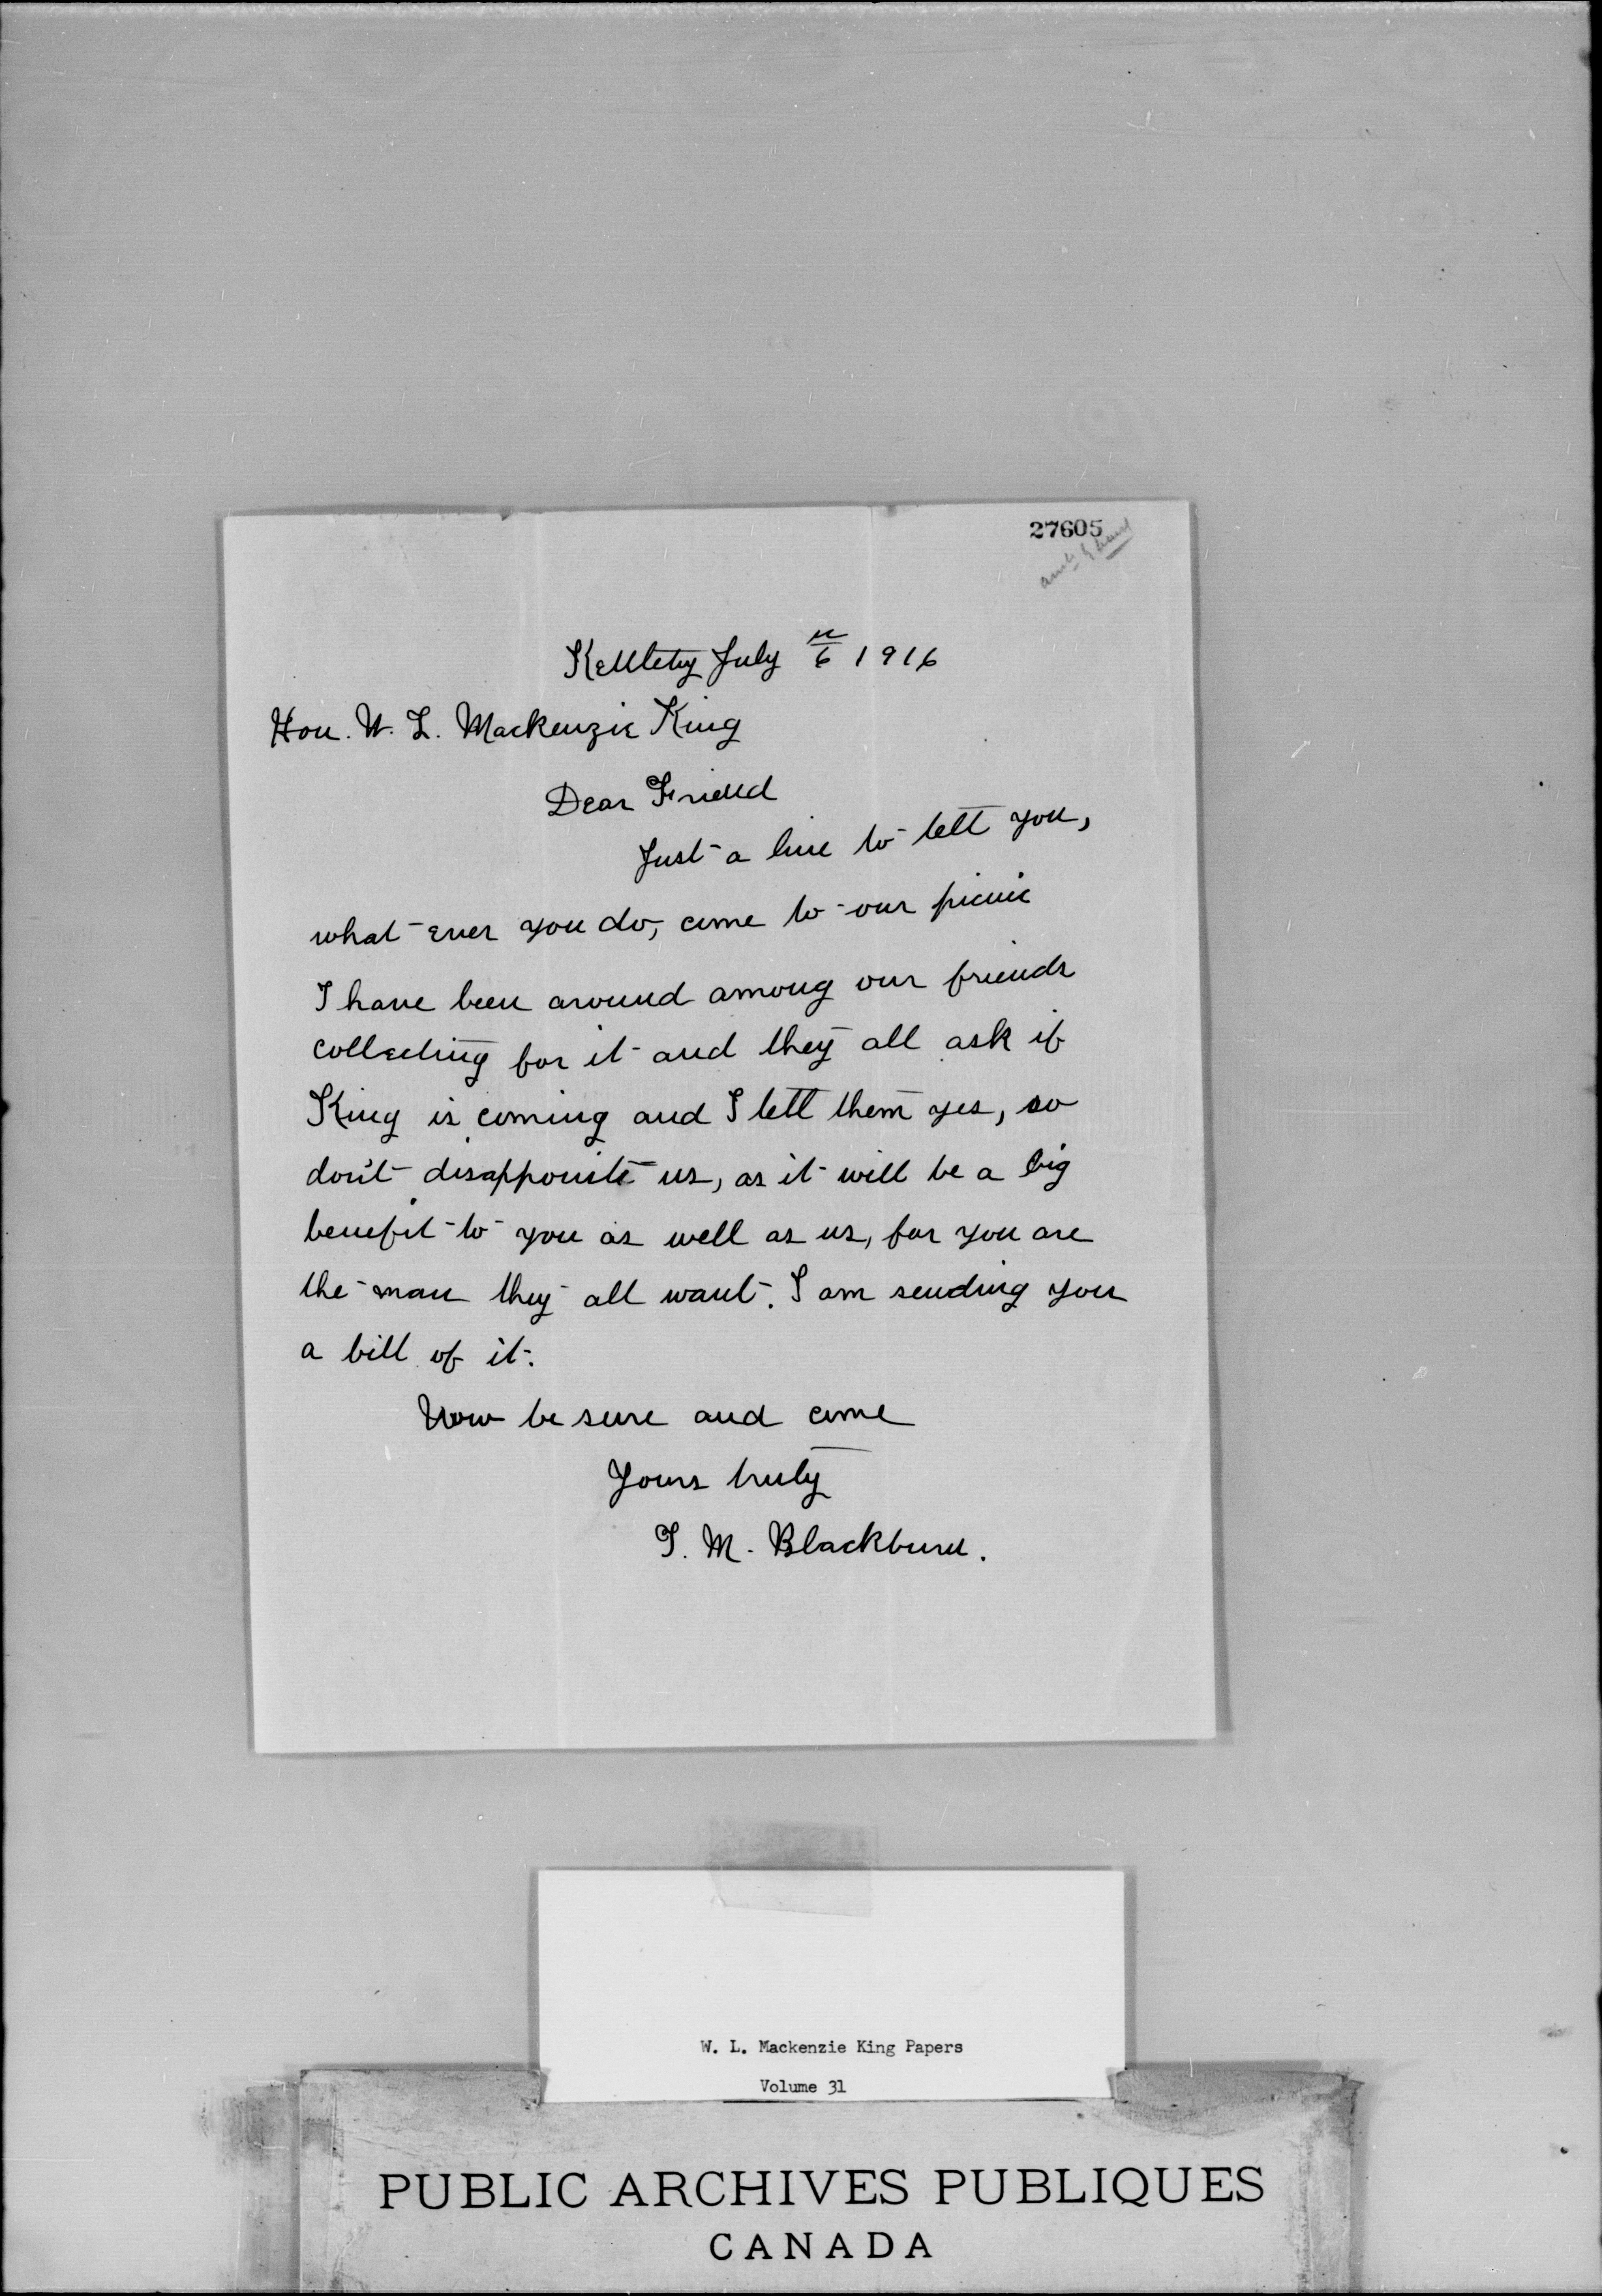 27605
ansd by hand
Kettleby July 6th 1916
Hon. W. L. Mackenzie King
Dear Friend
Just a line to tell you,
what ever you do, come to our picnic
I have been around among our friends
collecting for it and they all ask if
King is coming and I tell them yes, so
don't disappointe us, as it will be a big
benefit to you as well as us, for you are
the man they all want. I am sending you
a bill of it.
Now be sure and come
Yours truly
T. M. Blackburn.
W. L. Mackenzie King Papers
Volume 31
PUBLIC ARCHIVES PUBLIQUES
CANADA